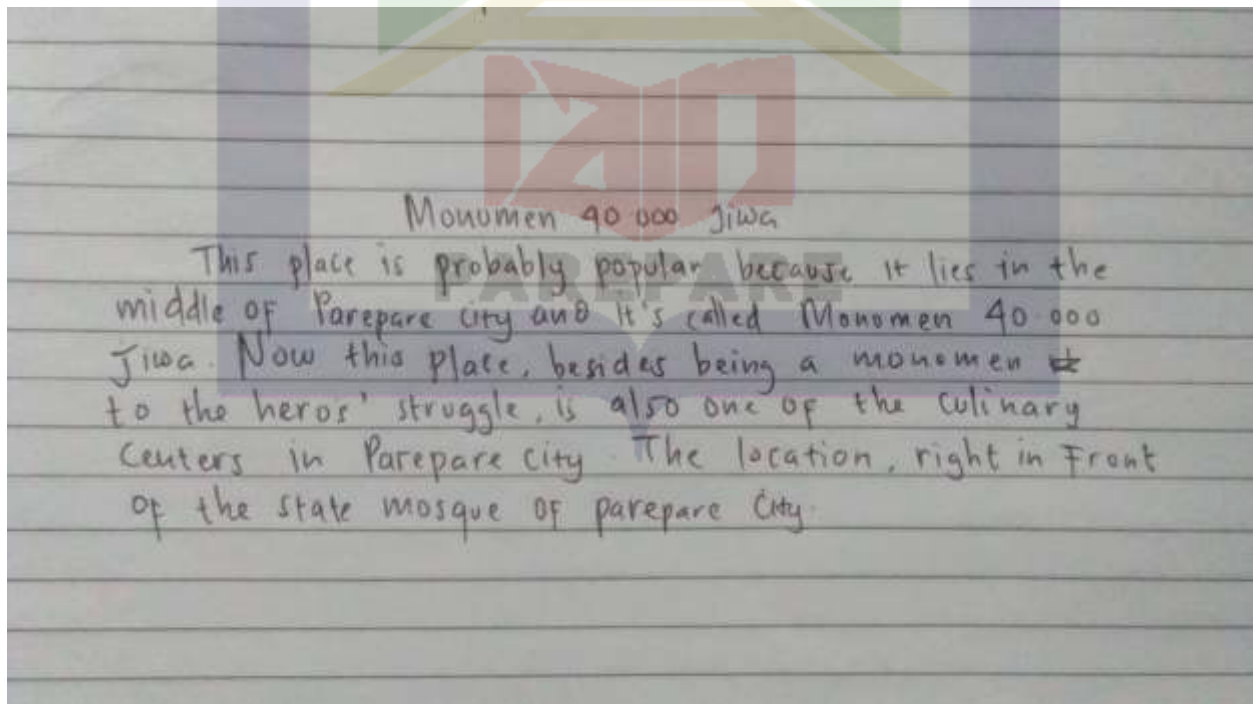 Monumen 40 000 Jiwa
This place is probably popular because it lies in the
middle of Parepare city and it's called Monomen 40.000
Jiwa. Now this place, besides being a monomen
to the heros' struggle, is also one of the culinary
Centers in Parepare city The location, right in Front
of the state mosque of parepare City.
PAREPARE